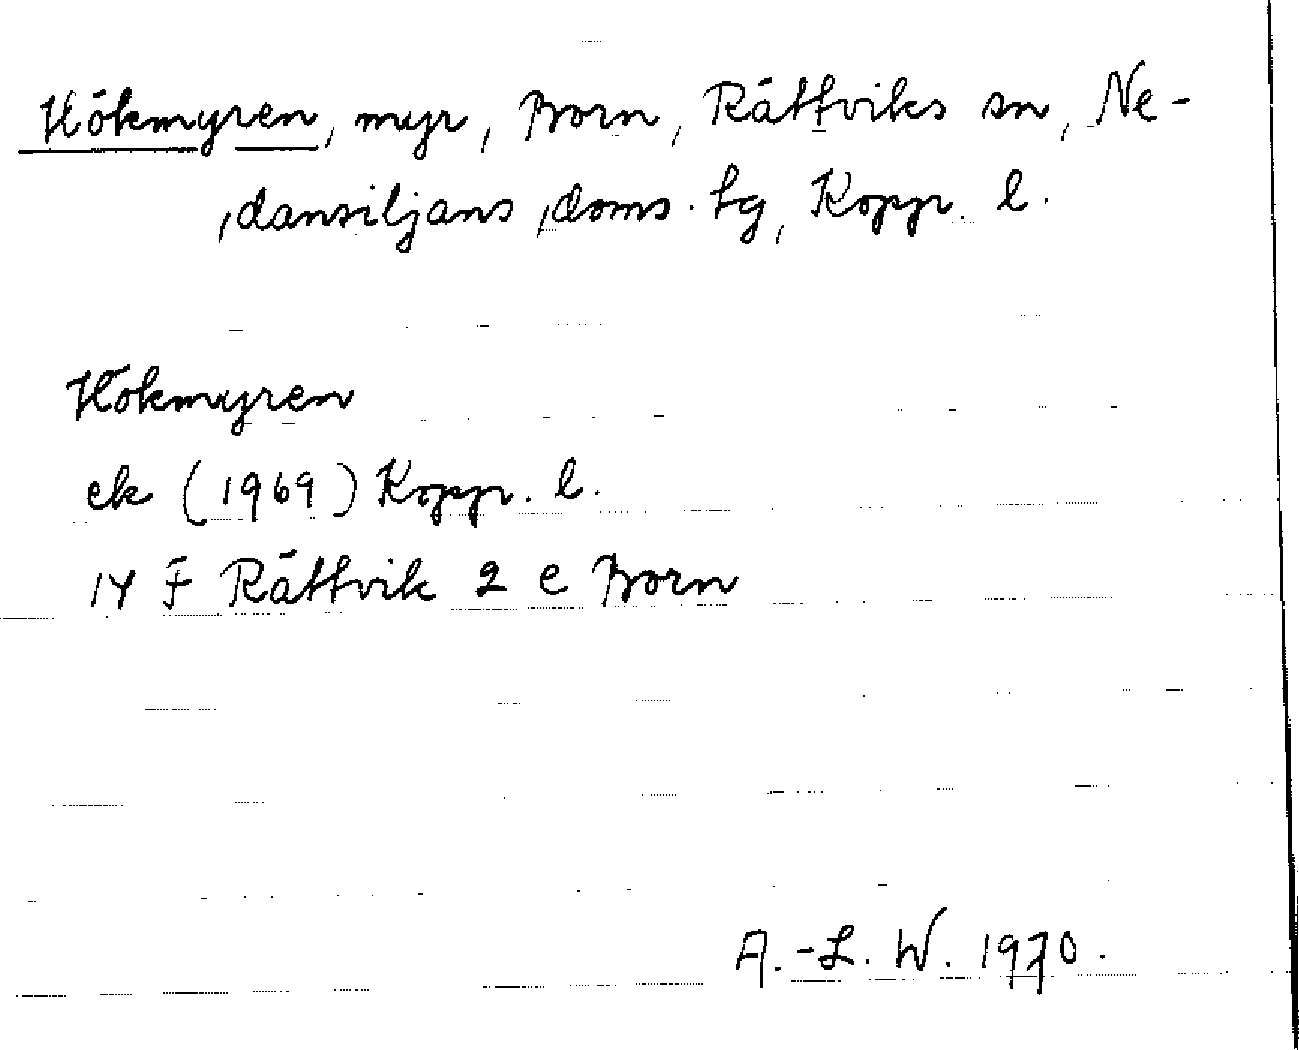 Hökmyren, myr, Born, Rättviks sn, Ne-
dansiljans doms. tg, Kopp. l.
Hökmyren
ek (1969) Kopp. l.
14 F Rättvik 2 e Born
A.-L. W. 1970.